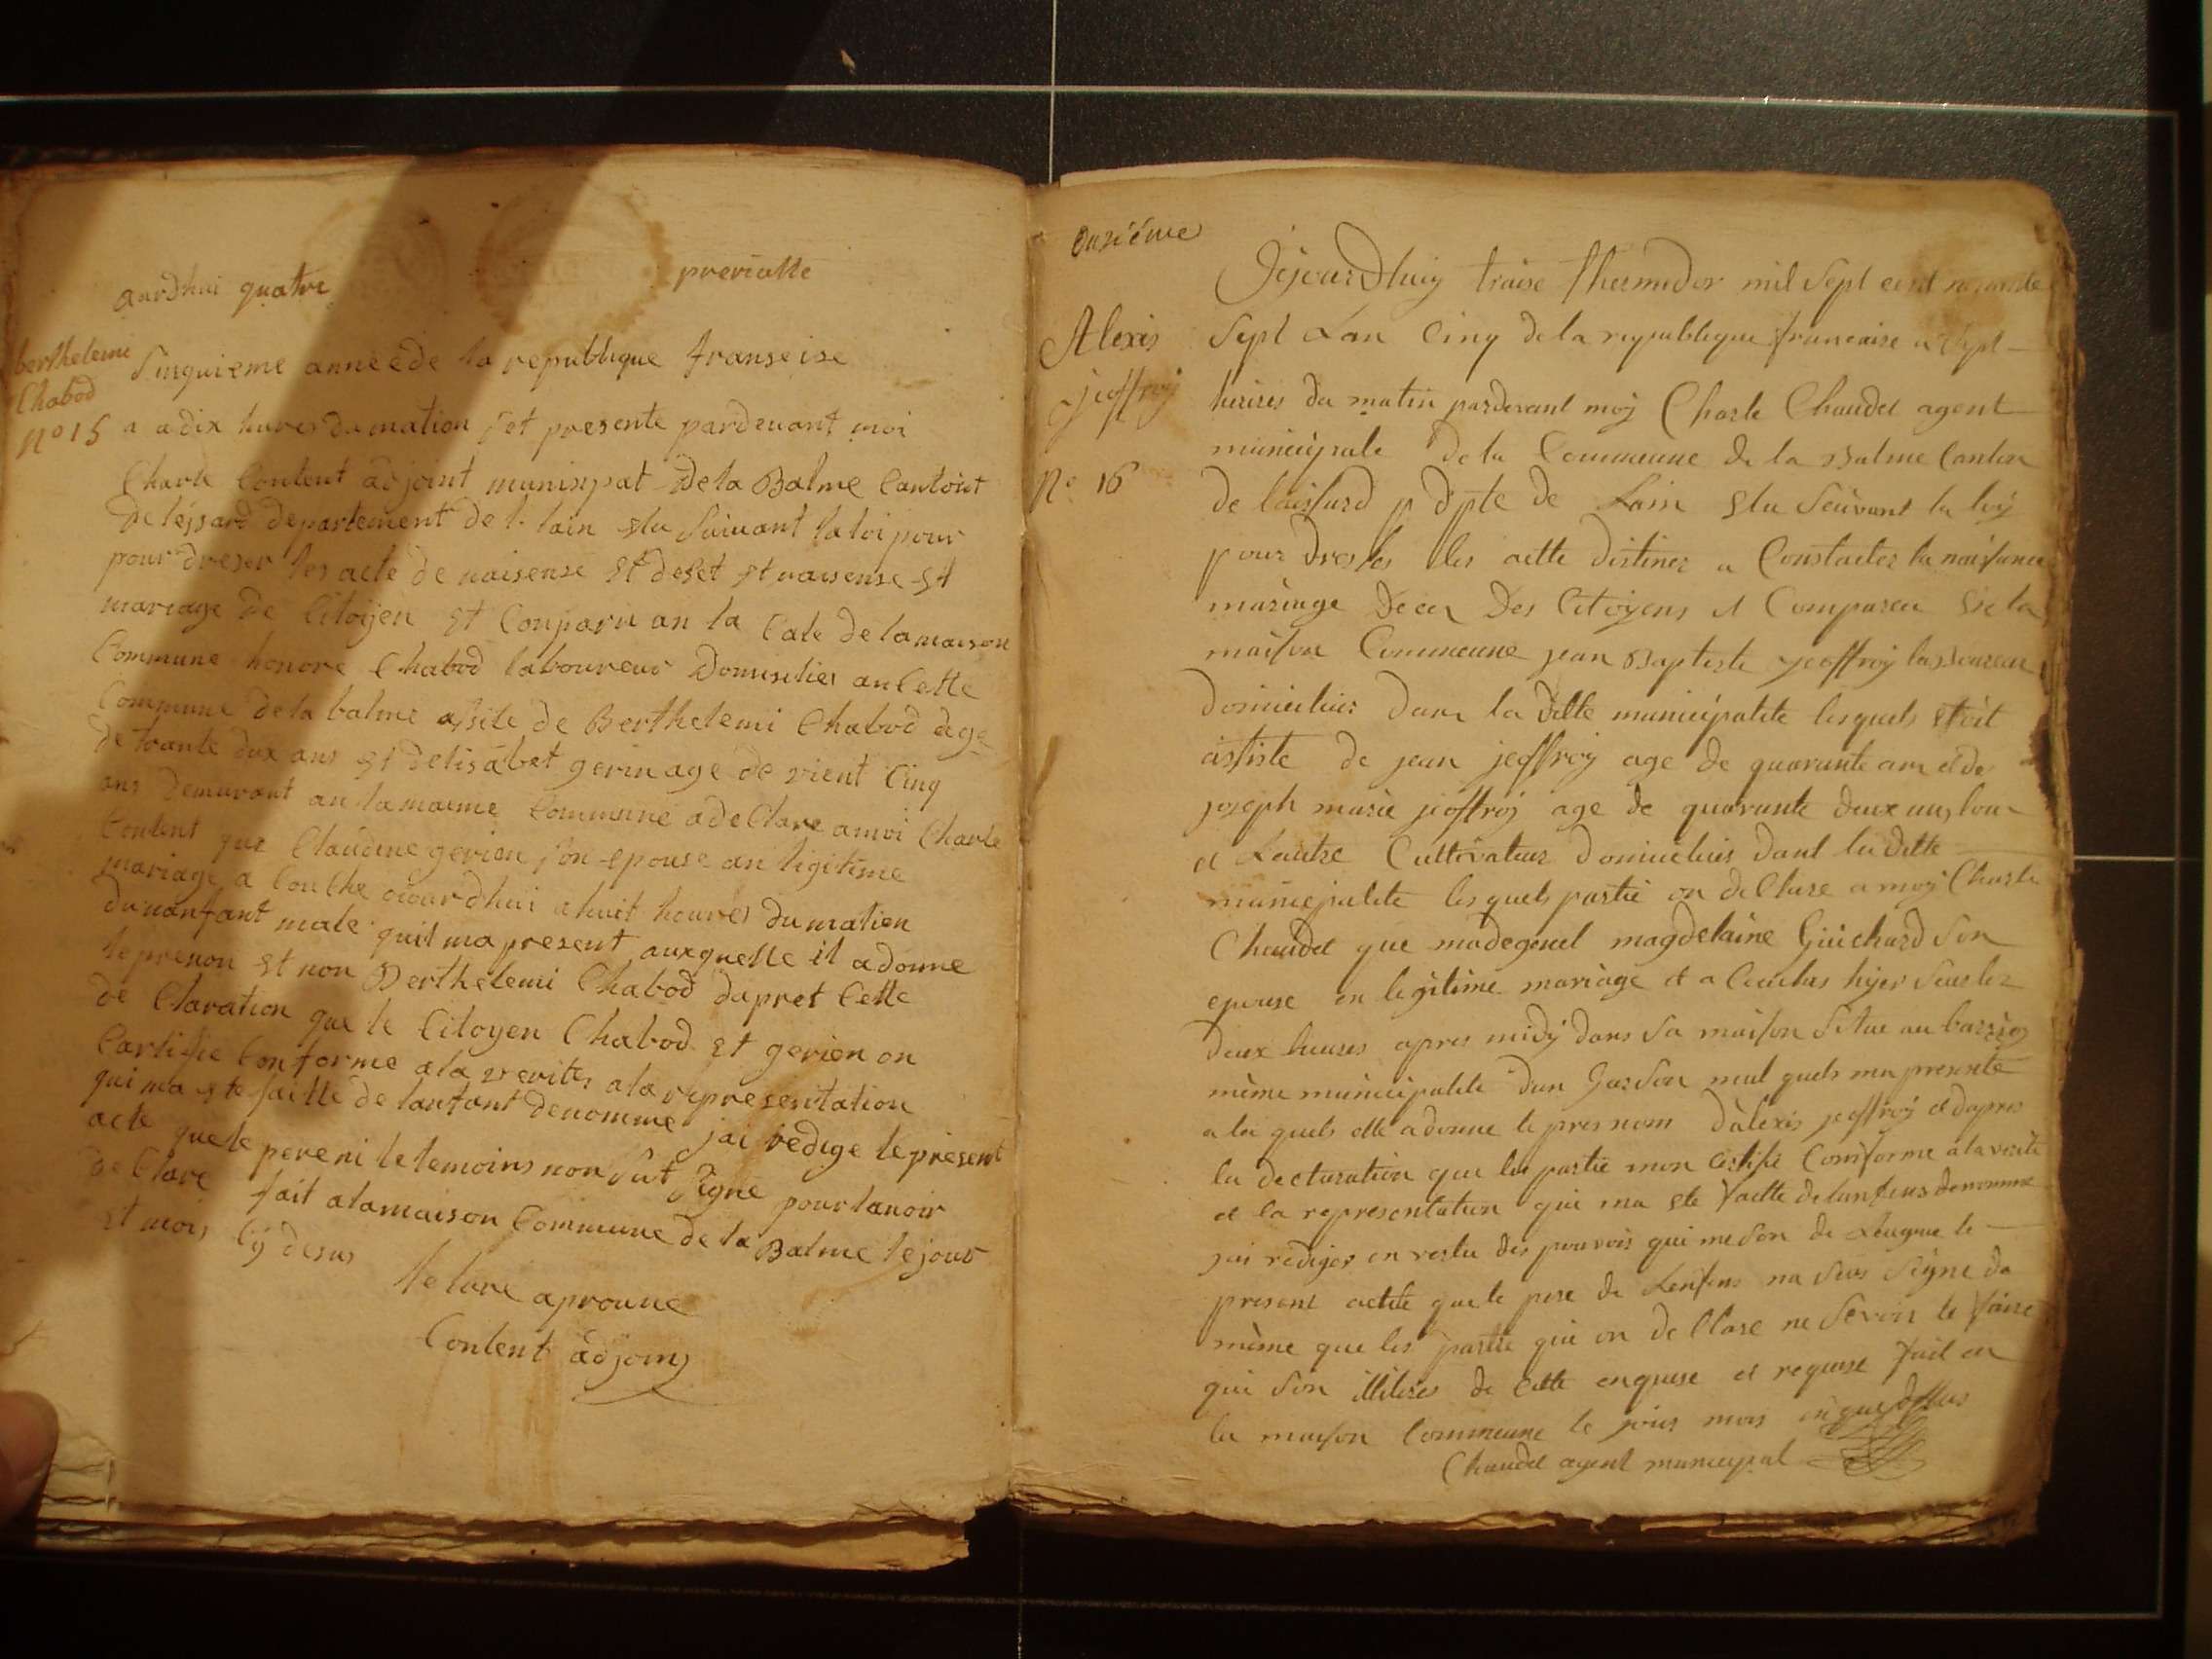 aurdhui quatre prerialle
berthelemi
Chabod
No 15
Sinquieme anneede la republique franseise
a adix hures du mation set presente pardenant moi
Charle Content adjoint munisipat de la Balme Cantont
De lejsard departement de l. lain elu suivant la loi pour
pour dreser les acte de naisense et deset et naisense et
mariage de Citoyen et Conparu an la Cale de lamaison
Commune honore Chabod laboureur Domisilier an Cette
Commune de la balme asiste de Berthelemi Chabod age
de trante dux ans et delisabet gerin age de vient Cinq
ans demurant an la maime Commune a de Clare a moi Charle
Content que Claudine gerien son epouse an ligitime
mariage a Couche ojourdhui a huit houres du matien
du nanfant male quil ma present auxquelle il a donne
le prenon et non Berthelemi Chabod dapret Cette
de Claration que le Citoyen Chabod et gerien on
Cartifie Conforme a la verites a la representation
qui ma ete faitte de lanfant denomme jai redige le present
acte que le pere ni le temoins non sut signe pour lavoir
de Clare fait a lamaison Commune de la Balme le jour
et mois Cy desus
le lare aprouue
Content adjoing
onziéme
Alexis
jeoffroy
No 16
Cejourdhuy traise thermidor mil sept cent nonante
sept Lan Cinq de la republique francaise a sept
heures du matin pardevant moy Charle Chaudet agent
municipale de la Commeune de la Balme Canton
de laissard dpte de Lain elu seuivant la loy
pour dresses les actte distinez a Constactez la naissance
mariage deces des Citoyens et Compareu en la
maison Commeune jean Baptiste jeoffroy laboureur
domiciliez dans la ditte municipalite lesquels etoit
assiste de jean jeoffroy age de quarante ans et de
joseph marie jeoffroy age de quarante deux ans lun
et Lautre Cultivateur domiciliés dant la ditte
municipalite lesquels partie on de Clare a moy Charle
Chaudet que madegenel magdelaine Guichard son
epouse en legitime mariage et a Couchas hyer sus les
deux heures apres midy dans sa maison situe au barrioz
même municipalite dun Garson mal quels ma presente
a loi quels elle a donne le pres nom dalexis jeoffroy et dapres
la decturation que les partie mon certifié Conforme a la verite
et la representation qui ma ete faitte de lanfans denomme
jai rediger en vertu des pouvois qui me son de Leugue le
present actte que le pere de Lenfens na seus signe de
même que les partie qui on de Clare ne sevoir le faire
qui son illiteres de Cette enquise et requise fait en
la maison Commeune le jour mois en que dessus
Chaudet agent municipal